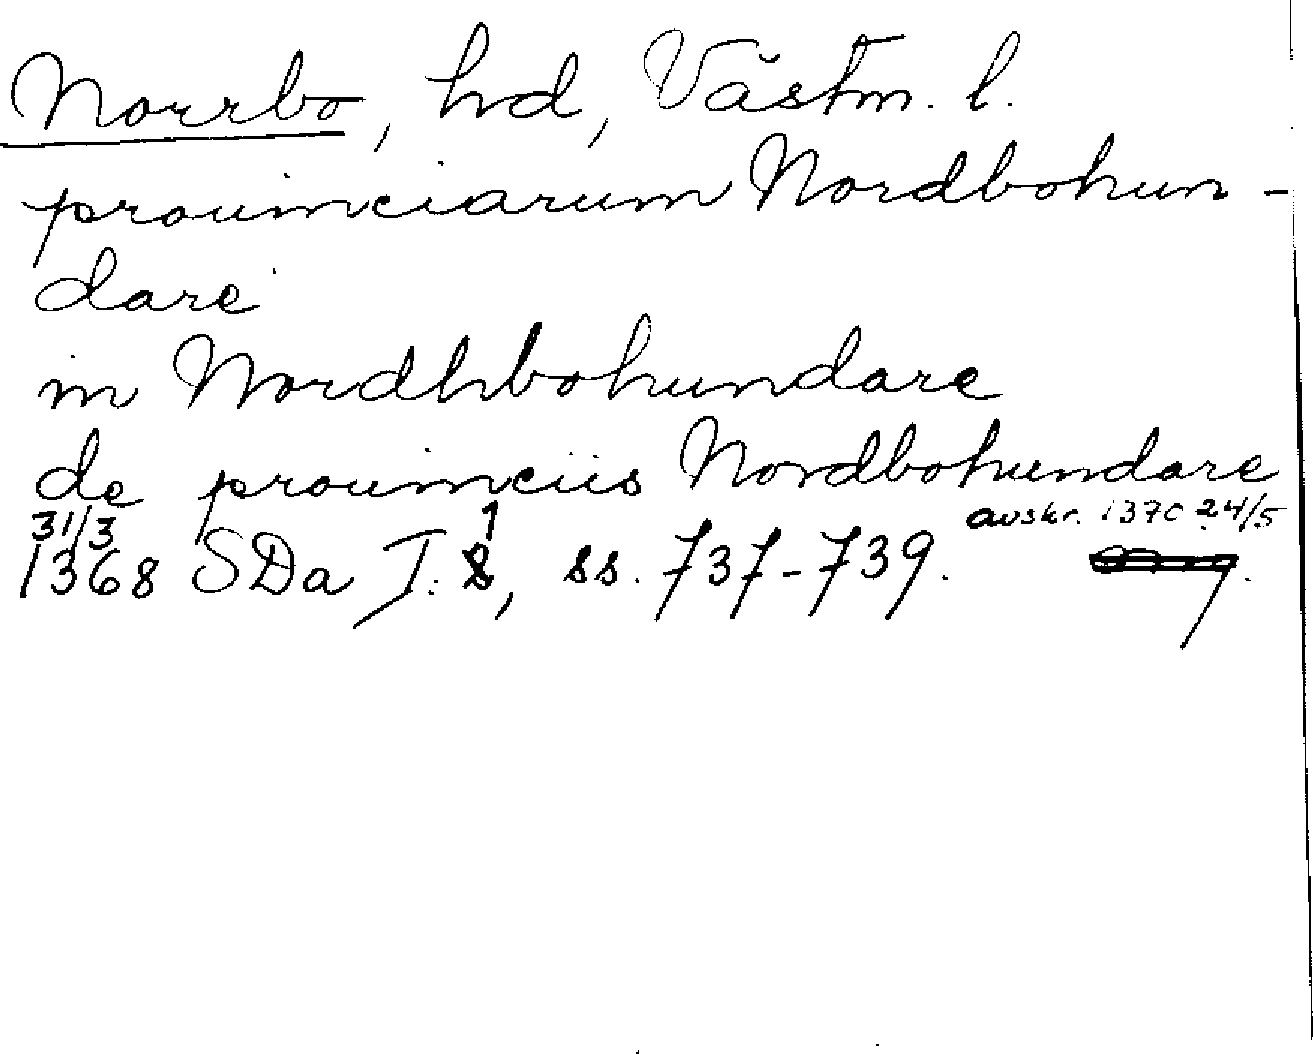 Norrbo, hd, Västm. l.
prouinciarum Nordbohun-
dare
in Nordhbohundare
de prouinciis Nordbohundare
31/3 1 avskr. 1370 24/5
1368 SDa I. 8, ss. 737-739.